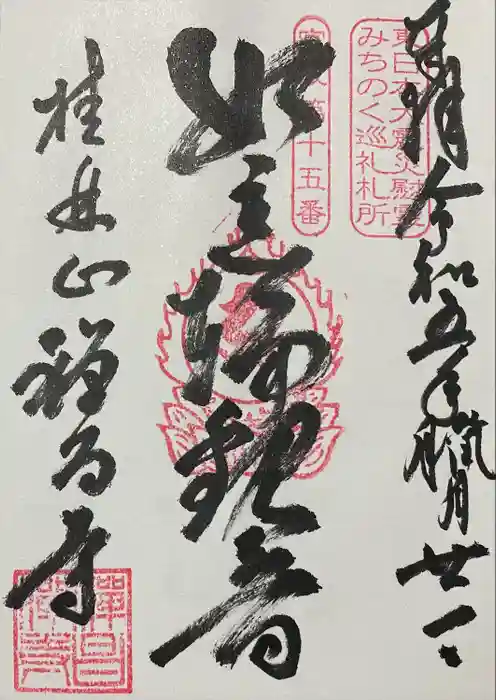 奉拝 令和五年臘月廿一日
東日本大震災慰霊
みちのく巡礼札所
宮城第十五番
如意輪観音
桂林山 禅昌寺